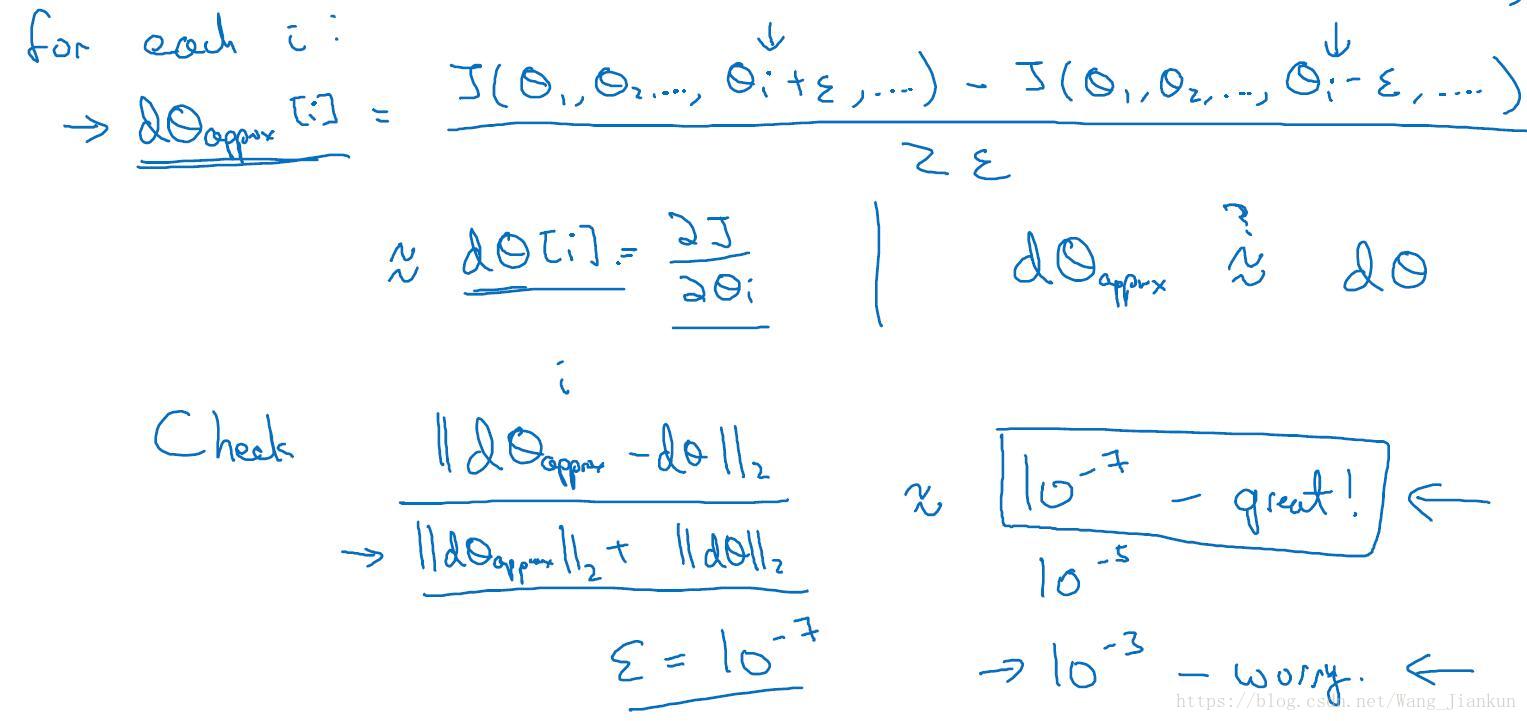 for each i:
→ dθapprox[i] = J(θ₁, θ₂, ..., θᵢ + ε, ....) - J(θ₁, θ₂, ..., θᵢ - ε, ....)
2ε
≈ dθ[i] = ∂J / ∂θᵢ | dθapprox ≈? dθ
i
Check ‖dθapprox - dθ‖₂
→ ‖dθapprox‖₂ + ‖dθ‖₂ ≈ 10⁻⁷ - great! ←
10⁻⁵
ε = 10⁻⁷
→ 10⁻³ - worry. ←
https://blog.csdn.net/Wang_Jiankun